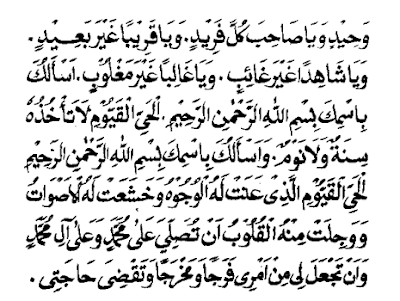 وَحِيْدٍ وَيَا صَاحِبَ كُلِّ فَرِيْدٍ. وَيَا قَرِيْبًا غَيْرَ بَعِـيْدٍ.
وَيَا شَاهِدًا غَيْرَ غَائِبٍ. وَيَا غَالِبًا غَيْرَ مَغْلُوْبٍ. اَسْأَلُكَ
بِاسْمِكَ بِسْمِ اللهِ الرَّحْمٰنِ الرَّحِيْمِ. اَلْحَيِّ الْقَيُّوْمِ لَا تَأْخُذُهُ
بِسِنَةٌ وَلَا نَوْمٌ. وَاَسْأَلُكَ بِاسْمِكَ بِسْمِ اللهِ الرَّحْمٰنِ الرَّحِيْمِ
اَلْحَيِّ الْقَيُّوْمِ الَّذِىْ عَنَتْ لَهُ الْوُجُوْهُ وَخَشَعَتْ لَهُ الْاَصْوَاتُ
وَوَجِلَتْ مِنْهُ الْقُلُوْبُ اَنْ تُصَلِّيَ عَلَىٰ مُحَمَّدٍ وَعَلَىٰ آلِ مُحَمَّدٍ
وَاَنْ تَجْعَلَ لِى مِنْ اَمْرِى فَرَجًا وَمَخْرَجًا وَتَقْضِىَ حَاجَتِى.